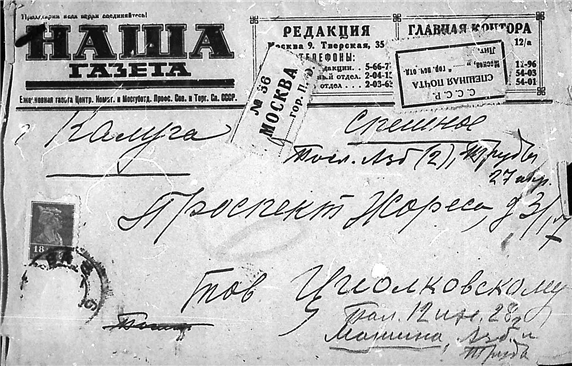 Пролетарии всех стран соединяйтесь!
НАША
ГАЗЕТА
Ежедневная газета Центр. Комит. и Мосгуботд. Профс. Сов. и Торг. Сл. СССР.
РЕДАКЦИЯ
Москва 9. Тверская, 35
ТЕЛЕФОНЫ:
5-66-7
2-04-1
2-03-6
ГЛАВНАЯ КОНТОРА
12/а
54-03
54-01
№ 36
МОСКВА
гор. П.
С. С. С. Р.
СПЕШНАЯ ПОЧТА
Москва
г Калуга
Спешное
27 апр.
18
Проспект Жореса, д 3/
Тов Циолковскому
12 28
Машина, Азб и
Труба